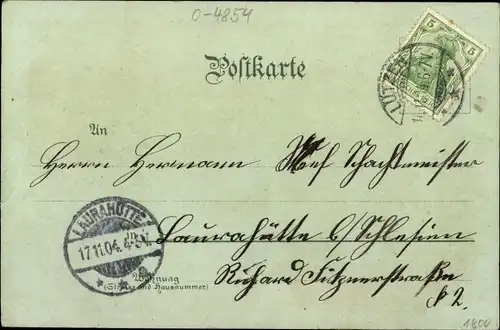 0-4854
5
5
Postkarte
An
Herrn Hermann Schachtmeister
LAURAHÜTTE
17.11.04. 4-5N.
Laurahütte b/ Schlesien
Wohnung
(Straße und Hausnummer)
Richard Fitznerstraße
№ 2.
1800